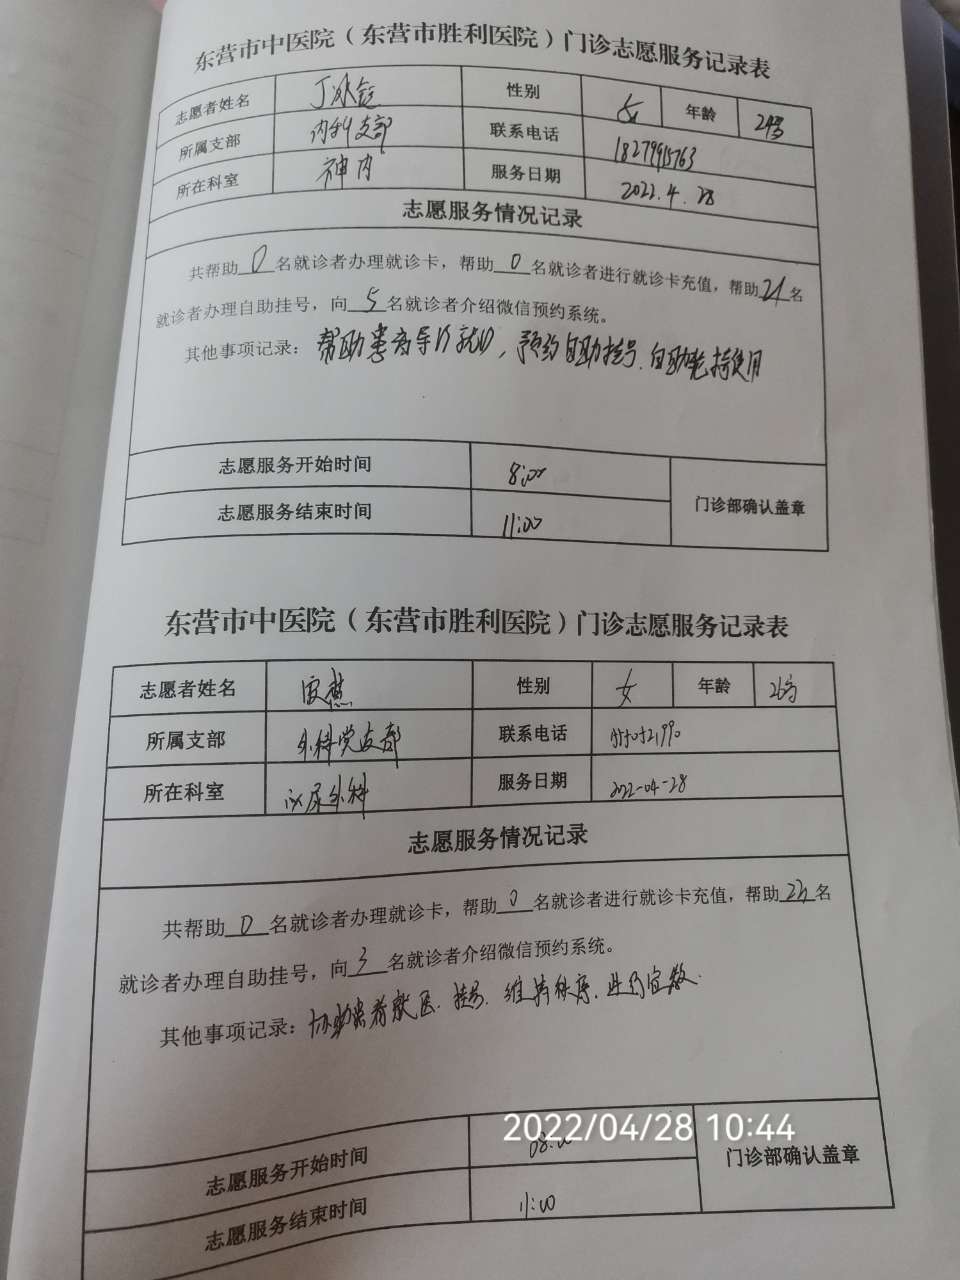 东营市中医院（东营市胜利医院）门诊志愿服务记录表
志愿者姓名 丁冰 性别 女 年龄 24岁
所属支部 内科支部 联系电话 18279915763
所在科室 神内 服务日期 2022.4.28
志愿服务情况记录
共帮助0名就诊者办理就诊卡，帮助0名就诊者进行就诊卡充值，帮助21名
就诊者办理自助挂号，向5名就诊者介绍微信预约系统。
其他事项记录：帮助患者导诊就诊，预约自助挂号、自助
志愿服务开始时间 8:00
门诊部确认盖章
志愿服务结束时间 11:00
东营市中医院（东营市胜利医院）门诊志愿服务记录表
志愿者姓名 性别 女 年龄 26岁
所属支部 外科党支部 联系电话
所在科室 泌尿外科 服务日期 2022-04-28
志愿服务情况记录
共帮助0名就诊者办理就诊卡，帮助0名就诊者进行就诊卡充值，帮助23名
就诊者办理自助挂号，向3名就诊者介绍微信预约系统。
其他事项记录：协助患者就医、挂号、维持秩序、
2022/04/28 10:44
志愿服务开始时间 08:00
门诊部确认盖章
志愿服务结束时间 11:00